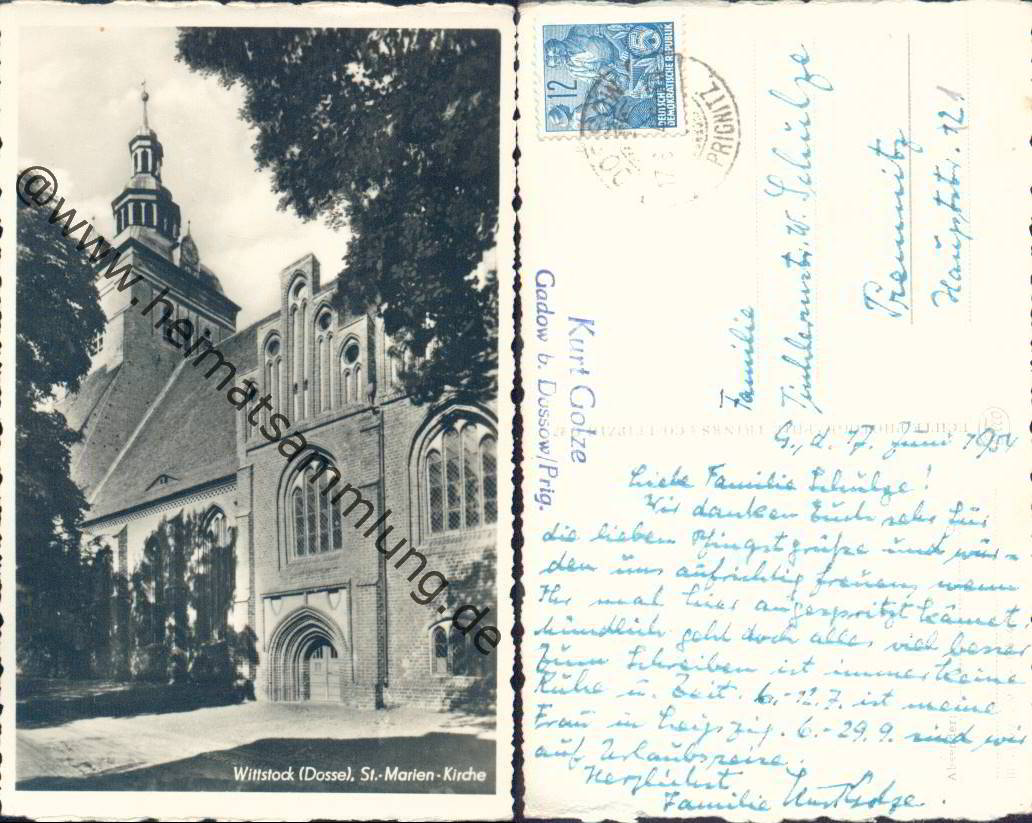 Wittstock (Dosse), St.-Marien-Kirche
@www.heimatsammlung.de
12
DEUTSCHE
DEMOKRATISCHE REPUBLIK
PRIGNITZ
17. 6.
Kurt Gotze
Gadow b. Dossow/Prig.
Familie
W. Schulze
Premnitz
Hauptstr. 121
G., d. 17. Juni 1954
Liebe Familie Schulze!
Wir danken Euch sehr für
die lieben Pfingstgrüße und wür-
den uns aufrichtig freuen, wenn
Ihr mal hier angespritzt kämet,
mündlich geht doch alles viel besser
Zum Schreiben ist immer keine
Ruhe u. Zeit. 6.-12.7. ist meine
Frau in Leipzig. 6.-29.9. sind wir
auf Urlaubsreise.
Herzlichst
Familie Kurt Gotze.